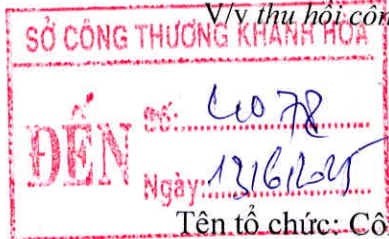 V/v thu hồi côn
SỞ CÔNG THƯƠNG KHÁNH HÒA
ĐẾN
Số: 4078
Ngày: 13/6/2025
Tên tổ chức: Cô